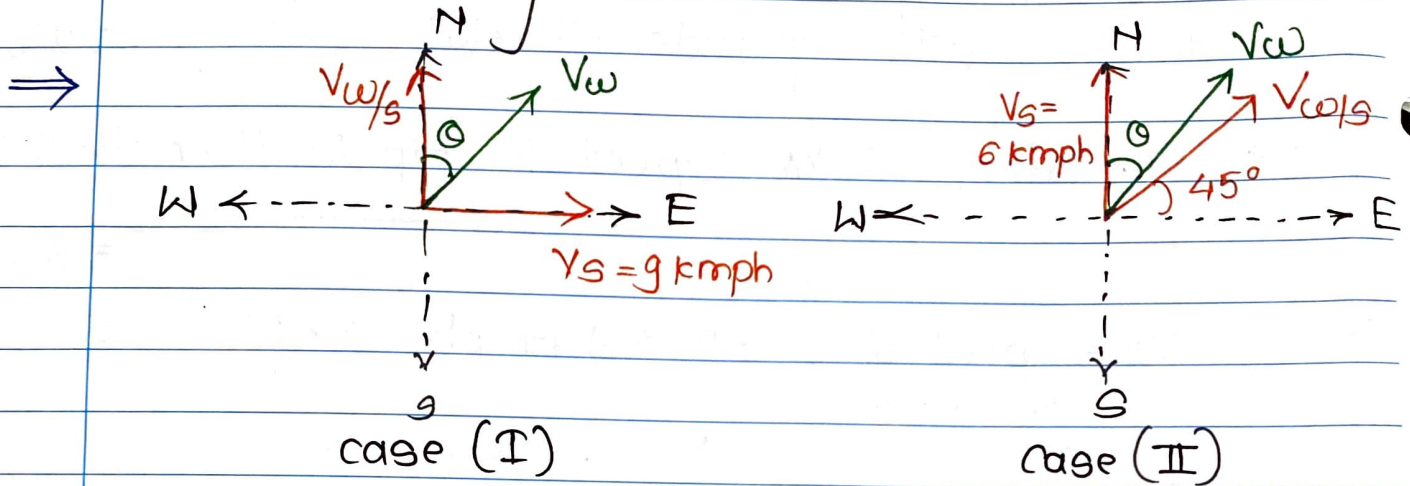 ⇒
N
V_w/s
Vw
θ
W
E
Vs = 9 kmph
S
case (I)
N
Vw
V_w/s
Vs =
6 kmph
θ
45°
W
E
S
case (II)